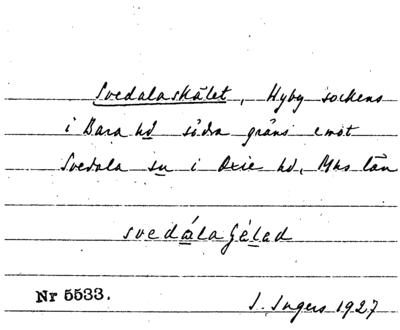 Svedalaskälet, Hyby sockens
i Bara hd södra gräns emot
Svedala sn i Oxie hd, Mhs län
svedálagélad
Nr 5533.
I. Ingers 1927